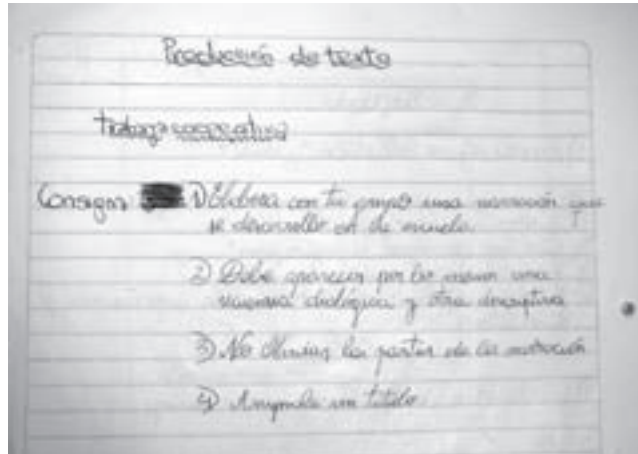 Producción de texto
Trabajo cooperativo
Consigna 1) Elabora con tu grupo una narración que
se desarrolle en la escuela.
2) Debe aparecer por lo menos una
secuencia dialógica y otra descriptiva
3) No olvides las partes de la narración
4) un título